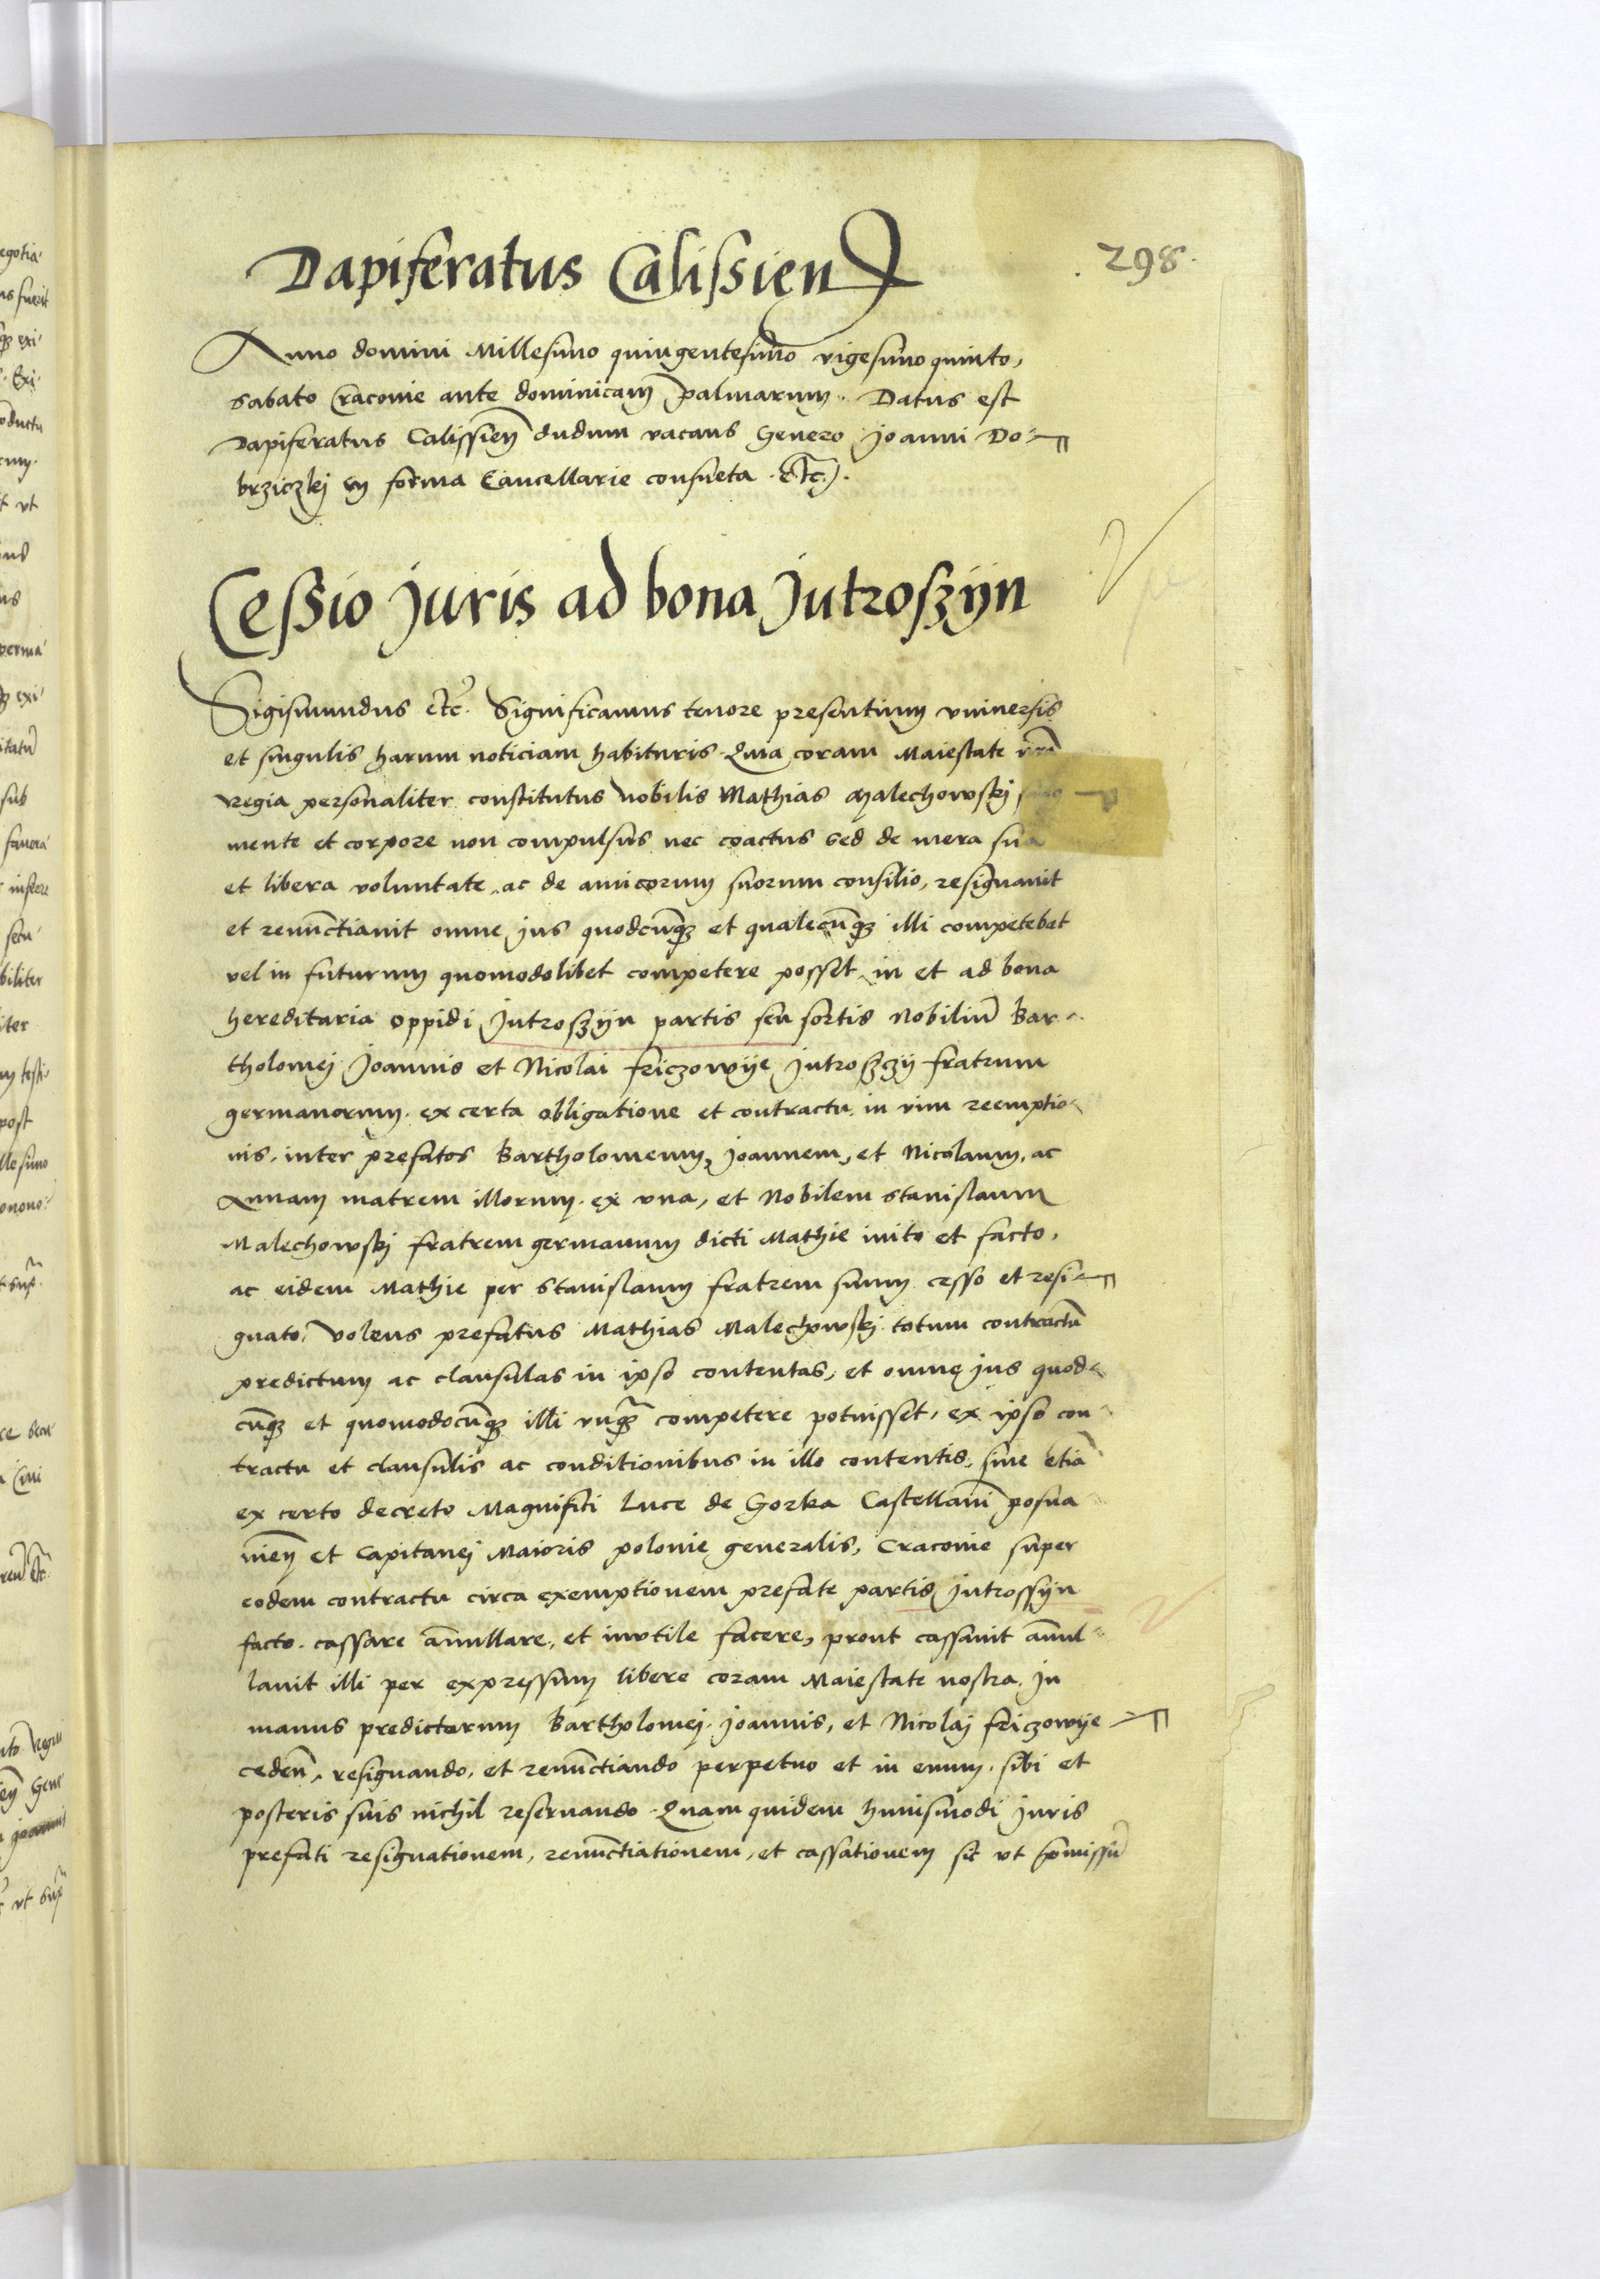 298.
Dapiferatus Calissien
Anno domini Millesimo quingentesimo vigesimo quinto,
sabato Cracovie ante dominicam palmarum. Datus est
Dapiferatus Calissien dudum vacans Genero Joanni Do-
brziczkj in forma Cancellarie consueta etc.
Cessio juris ad bona Jutroszÿn
Sigismundus etc. Significamus tenore presentium vniuersis
et singulis harum noticiam habituris. Quia coram Maiestate nra
regia personaliter constitutus Nobilis Mathias Malechowskj
mente et corpore non compulsus nec coactus sed de mera sua
et libera voluntate, ac de amicorum suorum consilio, resignauit
et renunctiauit omne jus quodcunqz et qualecunqz illi competebat
vel in futurum quomodolibet competere posset in et ad bona
hereditaria oppidi Jutroszÿn partis seu sortis Nobilium Bar-
tholomej Joannis et Nicolai friczowÿe Jutroszczÿ fratrum
germanorum. ex certa obligatione et contractu in vim reemptio-
nis. inter prefatos Bartholomeum, Joannem, et Nicolaum, ac
Annam matrem illorum. ex vna, et Nobilem Stanislaum
Malechowskj fratrem germanum dicti Mathie inito et facto,
ac eidem Mathie per Stanislaum fratrem suum cesso et resi-
gnato, Volens prefatus Mathias Malechowskj totum contractu
predictum ac clausulas in ipso contentas, et omne jus quod-
cunqz et quomodocunqz illi vnqz competere potuisset, ex ipso con-
tractu et clausulis ac conditionibus in illo contentis, siue etia
ex certo decreto Magnifici Luce de Gorka Castellani posna-
nien et Capitanej Maioris polonie generalis, Cracovie super
eodem contractu circa exemptionem prefate partis Jutrossÿn
facto. cassare annullare, et invtile facere, prout cassauit annul-
lauit illi per expressum libere coram Maiestate nostra. In
manus predictorum Bartholomej. Joannis, et Nicolaj friczowÿe
ceden, resignando, et renunctiando perpetuo et in euum. sibi et
posteris suis nichil reseruando. Quam quidem huiusmodi Juris
prefati resignationem, renunctiationem, et cassationem sic vt pmissu